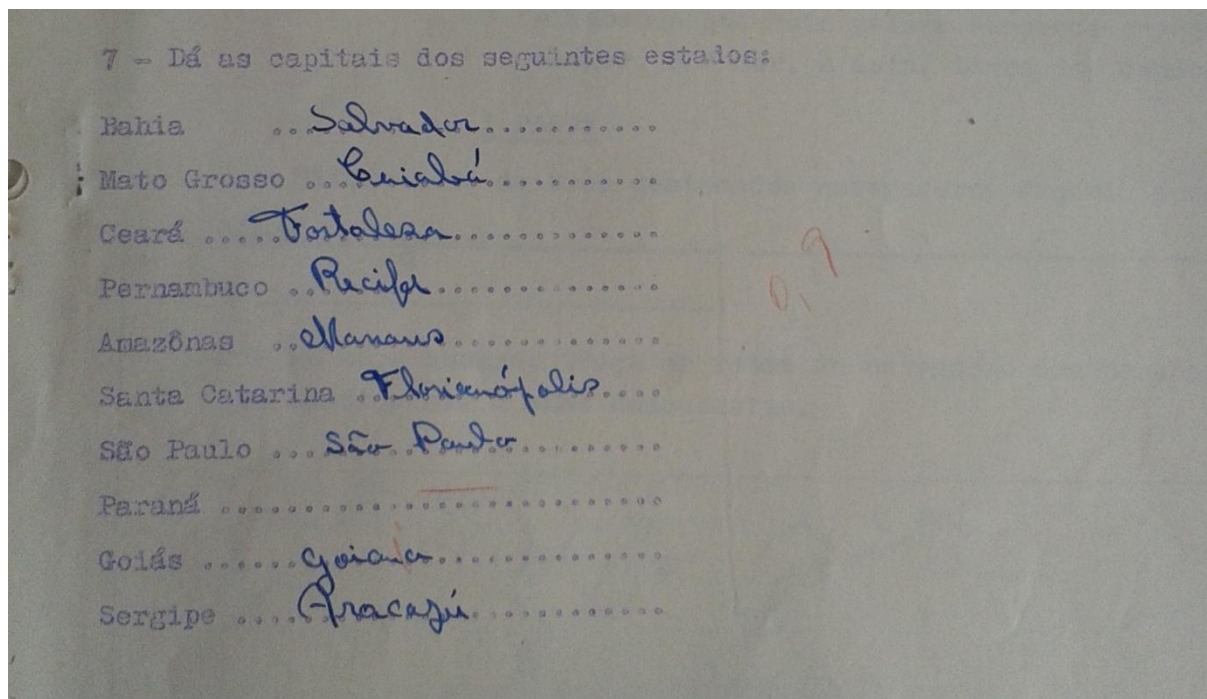 7 - Dá as capitais dos seguintes estados:
Bahia ..Salvador...........
Mato Grosso ..Cuiabá...........
Ceará .....Fortaleza.............
Pernambuco ..Recife..............
Amazônas ..Manaus.............
Santa Catarina ..Florianópolis....
São Paulo ...São Paulo..........
Paraná ............................
Goiás ......Goiana..............
Sergipe ....Aracajú............
0,9